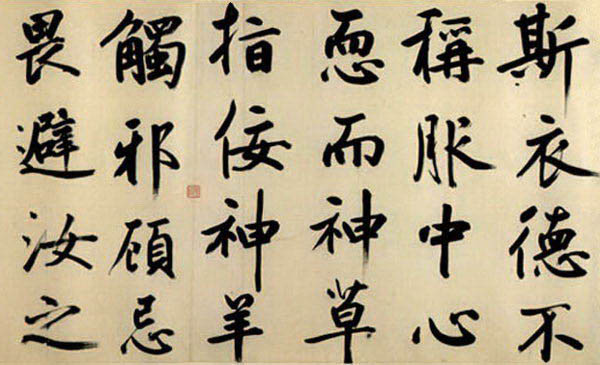 斯衣德不
稱服中心
恧而神草
指佞神羊
觸邪顧忌
畏避汝之